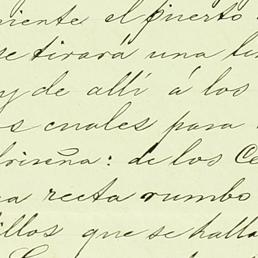 niente el puerto
se tirará una lin
y de allí á los
os cuales para
frisena: de los Ce
na recta rumbo
illos que se halla